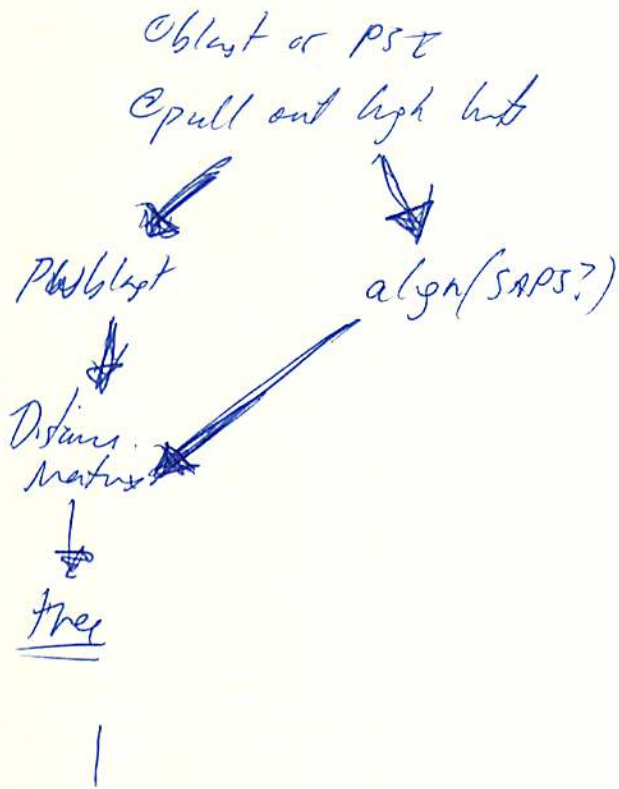 ① blast or PSI
② pull out high hits
align (SAPS?)
Distanc.
Matrix
tree